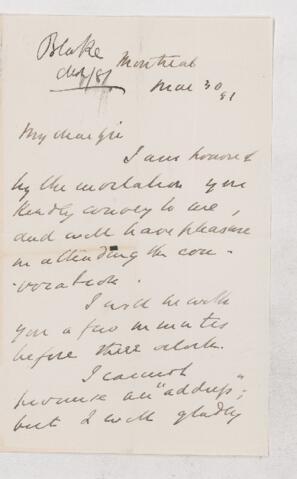 Blake
Montreal
Mar 30
81
My dear Sir
I am honored
by the invitation you
kindly convey to me,
and will have pleasure
in attending the con-
-vocation.
I will be with
you a few minutes
before three o'clock.
I cannot
promise an "address";
but I will gladly